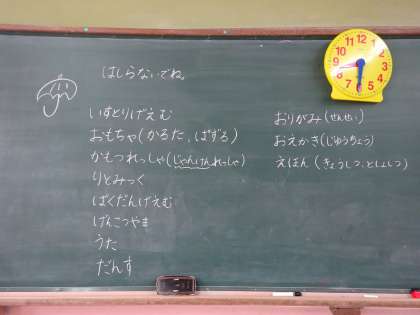 はしらないでね。
いすとりげえむ
おもちゃ(かるた、ぱずる)
かもつれっしゃ(じゃんけんれっしゃ)
りとみっく
ばくだんげえむ
げんこつやま
うた
だんす
おりがみ(せんせい)
おえかき(じゆうちょう)
えほん(きょうしつ、としょしつ)
12
1
2
3
4
5
6
7
8
9
10
11